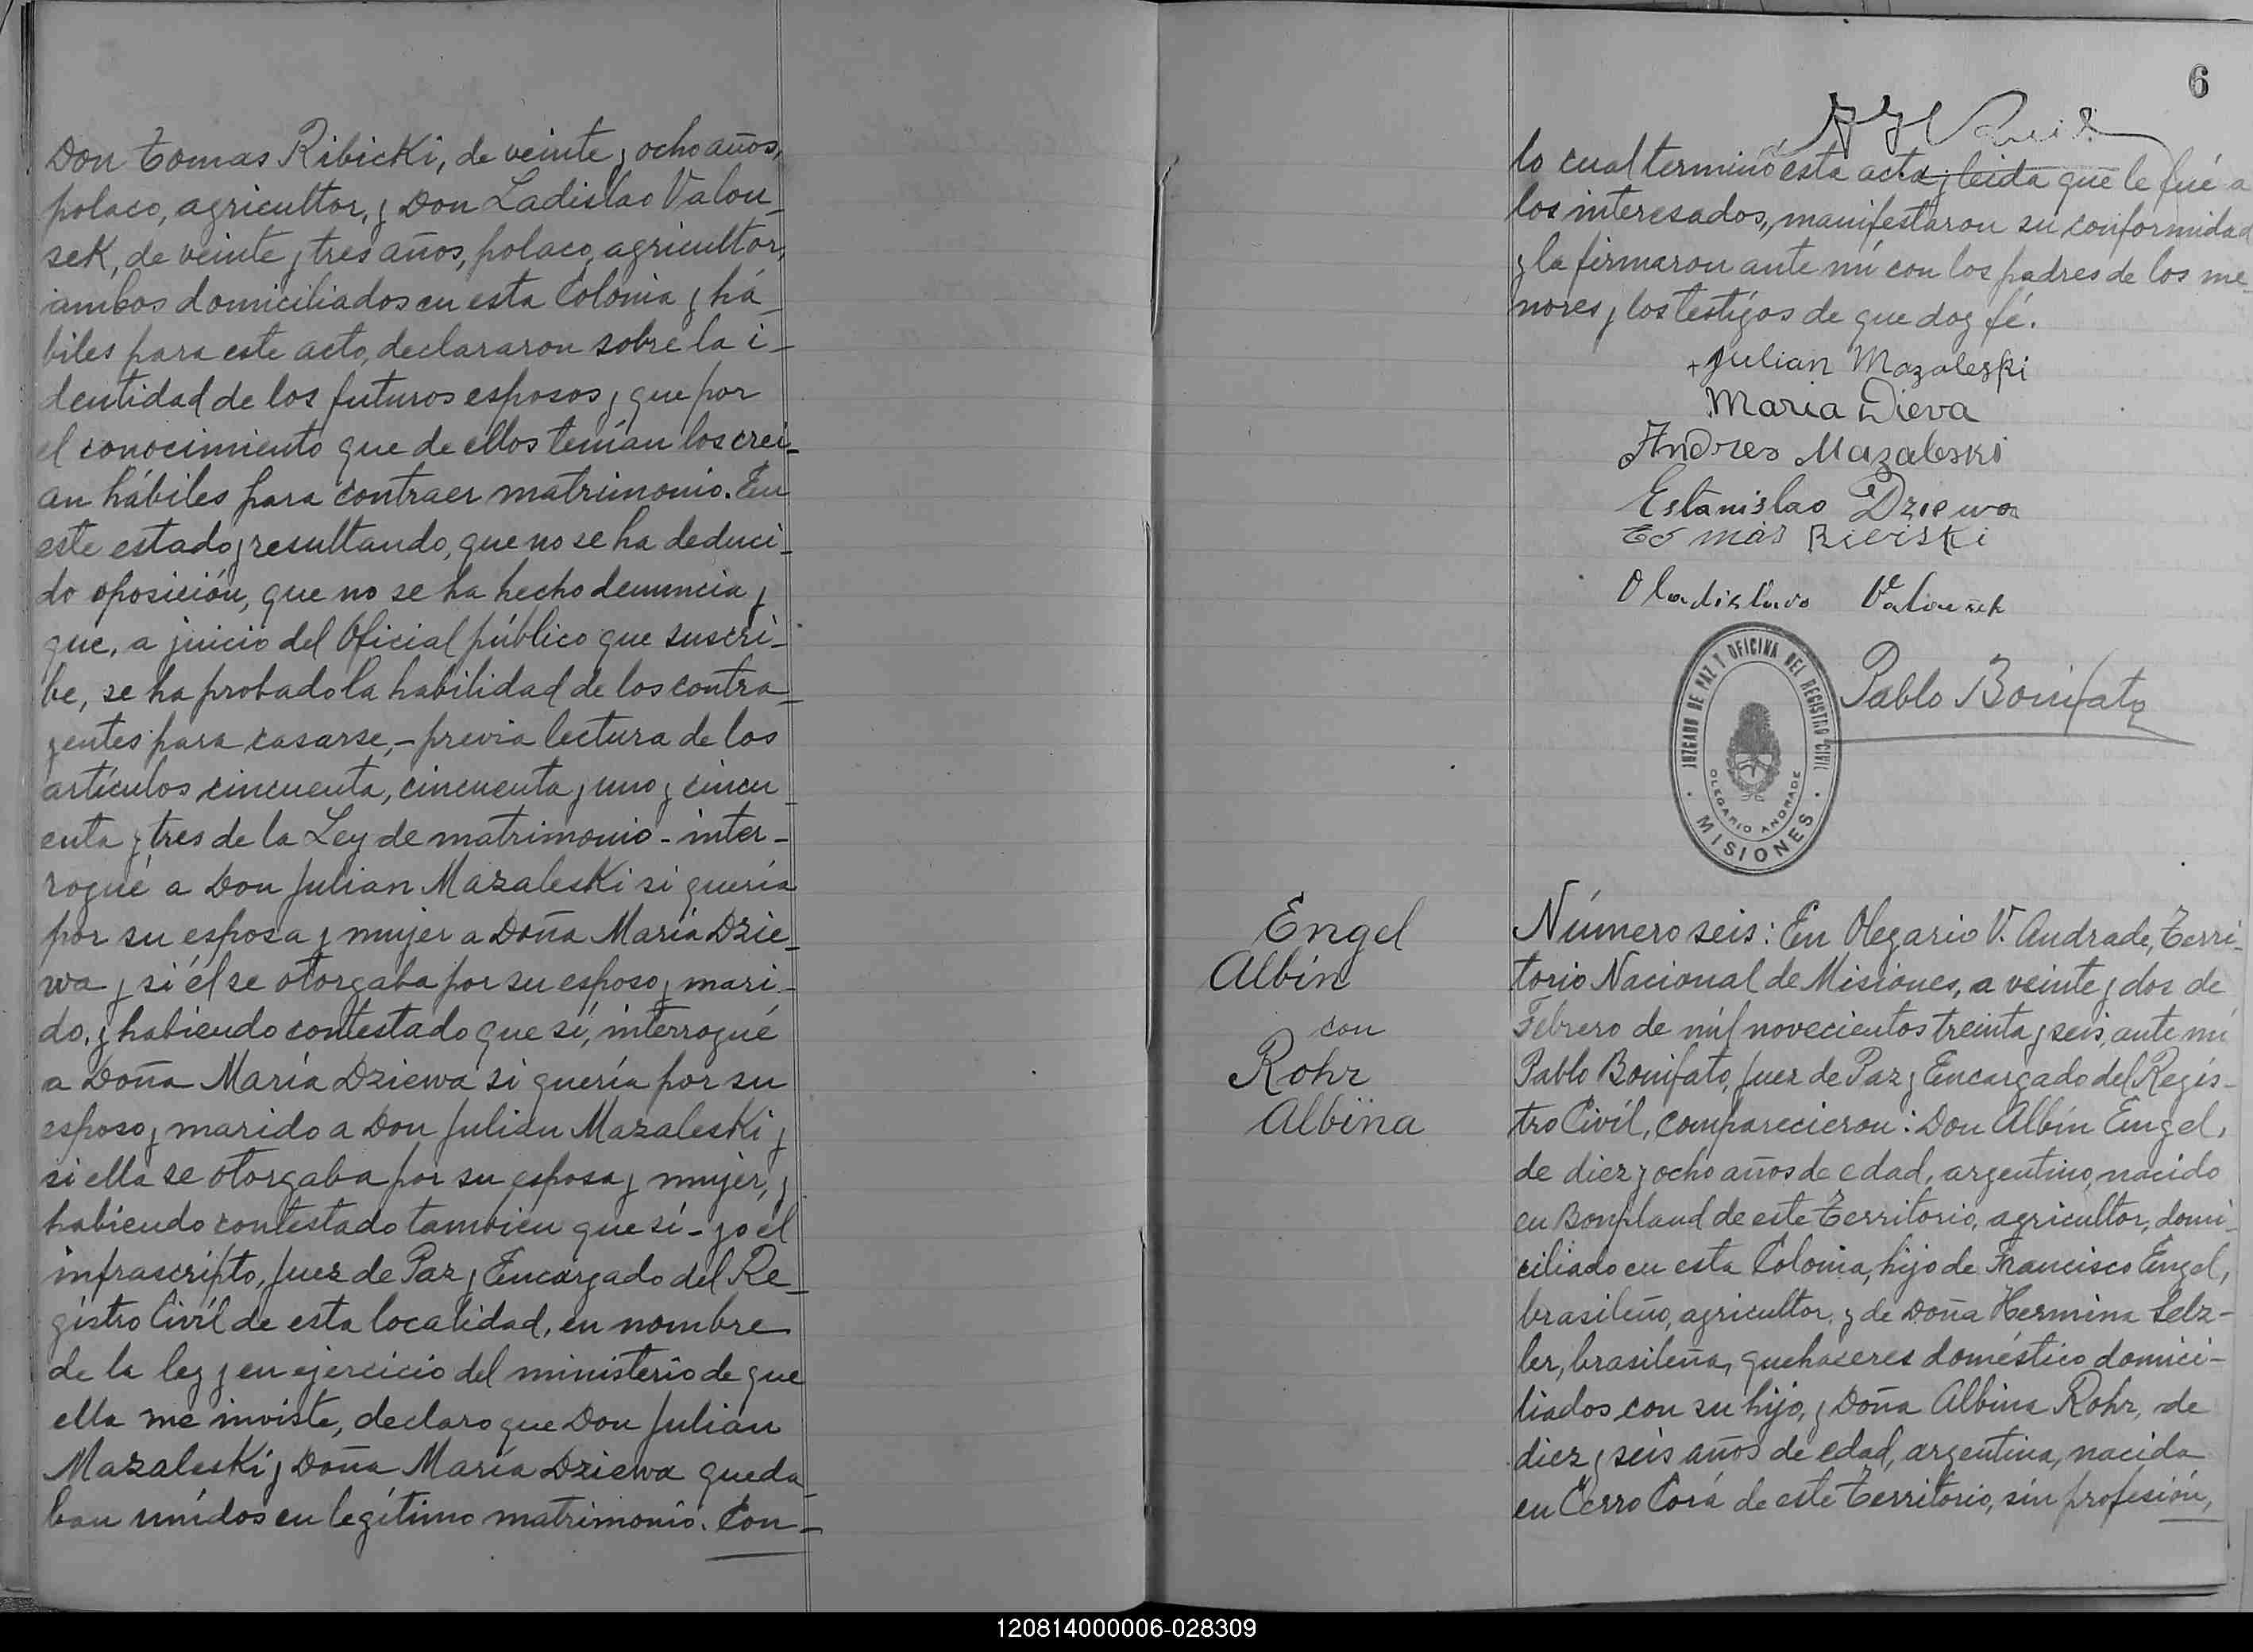 Don Tomas Ribicki, de veinte y ocho años,
polaco, agricultor, y Don Ladislao Valou-
sek, de veinte y tres años, polaco, agricultor,
ambos domiciliados en esta Colonia y há-
biles para este acto, declararon sobre la i-
dentidad de los futuros esposos y que por
el conocimiento que de ellos tenían los creí-
an hábiles para contraer matrimonio. En
este estado y resultando, que no se ha deduci-
do oposición, que no se ha hecho denuncia y
que, a juicio del Oficial público que suscri-
be, se ha probado la habilidad de los contra-
yentes para casarse, - previa lectura de los
artículos cincuenta, cincuenta y uno y cincu-
enta y tres de la Ley de matrimonio - inter-
rogué a Don Julian Mazaleski si quería
por su esposa y mujer a Doña María Dzie-
wa y si él se otorgaba por su esposo y mari-
do, y habiendo contestado que sí, interrogué
a Doña María Dziewa si quería por su
esposo y marido a Don Julian Mazaleski y
si ella se otorgaba por su esposa y mujer, y
habiendo contestado tambien que sí - yo el
infrascripto, Juez de Paz y Encargado del Re-
gistro Civíl de esta localidad, en nombre
de la ley y en ejercicio del ministerio de que
ella me inviste, declaro que Don Julian
Mazaleski y Doña María Dziewa queda-
ban unidos en legítimo matrimonio. Con-
6
lo cual terminó esta acta y leida que le fué a
los interesados, manifestaron su conformidad
y la firmaron ante mí con los padres de los me-
nores y los testigos de que doy fé.
+ Julian Mazaleski
Maria Dieva
Andres Mazaleski
Estanislao Dziewa
Tomás Ribiski
Oladislavo Valousek
Pablo Bonifato
JUZGADO DE PAZ Y OFICINA DEL REGISTRO CIVIL
OLEGARIO ANDRADE
MISIONES
Engel
Albín
con
Rohr
Albina
Número seis: En Olegario V. Andrade, Terri-
torio Nacional de Misiones, a veinte y dos de
Febrero de mil novecientos treinta y seis, ante mí
Pablo Bonifato, Juez de Paz y Encargado del Regis-
tro Civíl, comparecieron: Don Albín Engel,
de diez y ocho años de edad, argentino, nacido
en Bonpland de este Territorio, agricultor, domi-
ciliado en esta Colonia, hijo de Francisco Engel,
brasileño, agricultor, y de Doña Hermina Selz-
ler, brasileña, quehaceres doméstico domici-
liados con su hijo, y Doña Albina Rohr, de
diez y seis años de edad, argentina, nacida
en Cerro Corá de este Territorio, sin profesión,
120814000006-028309